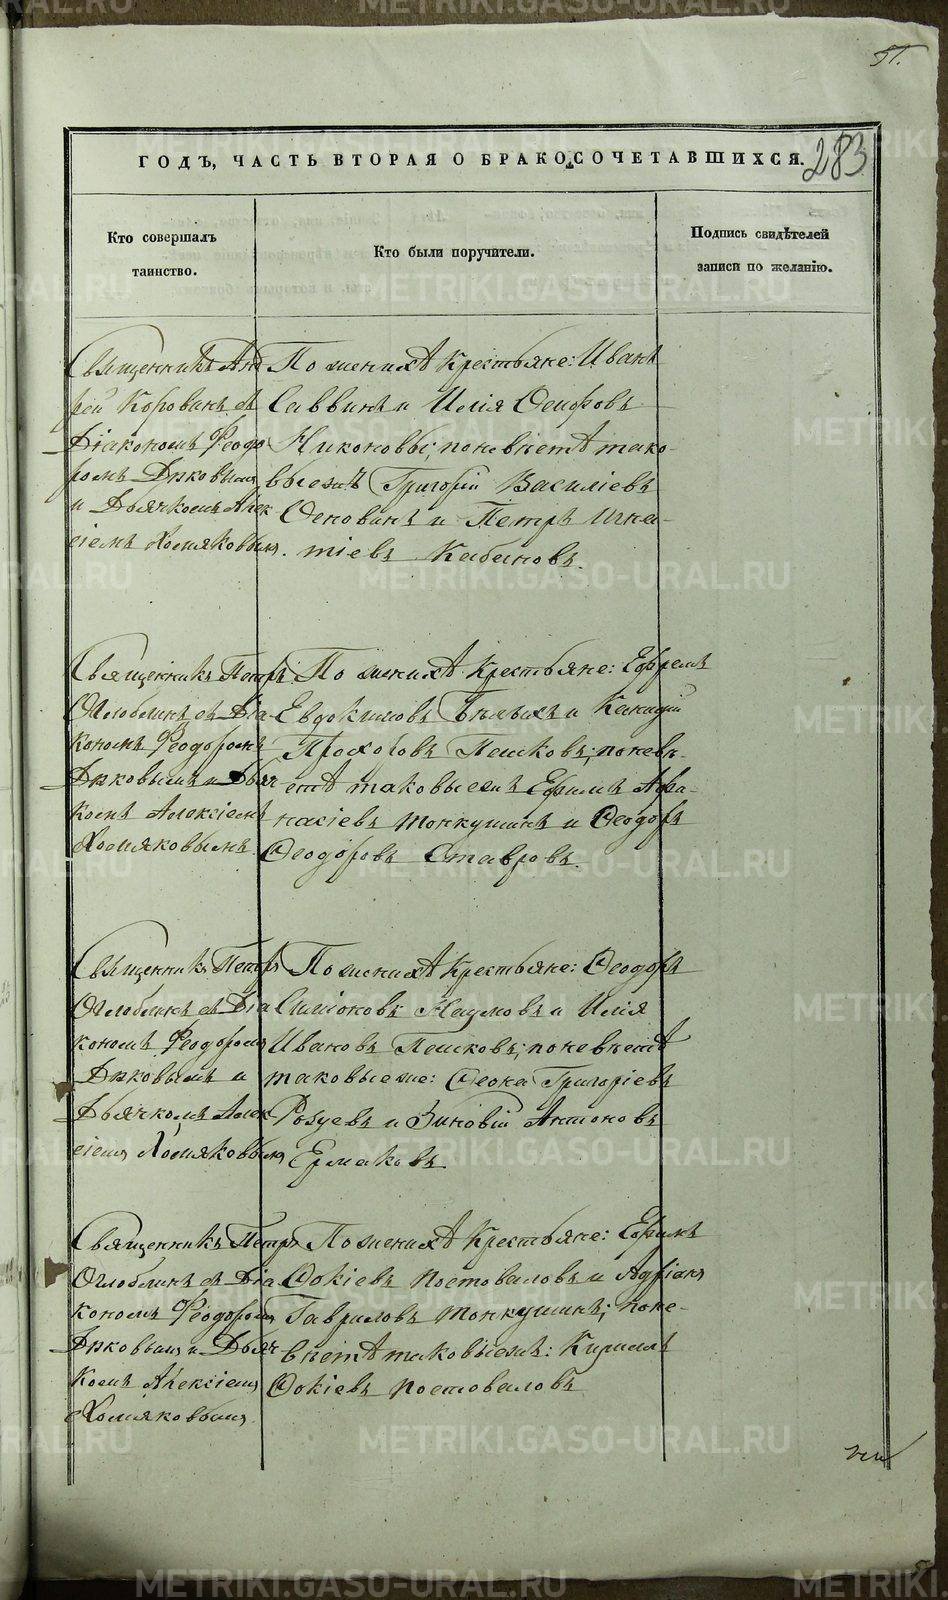 51.
283
ГОДЪ, ЧАСТЬ ВТОРАЯ О БРАКОСОЧЕТАВШИХСЯ.
Кто совершалъ
таинство.
Кто были поручители.
Подпись свидѣтелей
записи по желанію.
Священникъ Анд
рей Коровинъ съ
Діакономъ Ѳеодо
ромъ Дьяковымъ
и Дьячкомъ Алек
сіемъ Хомяковымъ.
По женихѣ Крестьяне: Иванъ
Саввинъ и Илія Осифовъ
Никоновы; по невѣстѣ тако-
выежъ Григорій Василіевъ
и Петръ Игна-
тіевъ Кабановъ.
Священникъ Петръ
Оглоблинъ съ Діа-
кономъ Ѳеодоромъ
Дьяковымъ и Дьяч
комъ Алексіемъ
Хомяковымъ
По женихѣ Крестьяне: Ефремъ
Евдокимовъ и
Прохоровъ Пешковъ; по невѣ-
стѣ таковыежъ Ефимъ Афа-
насіевъ Тонкушинъ и Ѳеодоръ
Ѳеодоровъ Ставровъ.
Священникъ Петръ
Оглоблинъ съ Діа
кономъ Ѳеодоромъ
Дьяковымъ и
Дьячкомъ Алек
сіемъ Хомяковымъ
По женихѣ Крестьяне: Ѳеодоръ
Симіоновъ Наумовъ и Илія
Ивановъ Пешковъ; по невѣстѣ
таковыеже: Григоріевъ
и Зиновій Антоновъ
Ермаковъ.
Священникъ Петръ
Оглоблинъ съ Діа
кономъ Ѳеодоромъ
Дьяковымъ и Дьяч
комъ Алексіемъ
Хомяковымъ.
По женихѣ Крестьяне: Ефимъ
Ѳокіевъ Постоваловъ и Адріанъ
Гавриловъ Тонкушинъ; по не-
вѣстѣ таковыежъ: Кириллъ
Ѳокіевъ Постоваловъ
METRIKI.GASO-URAL.RU